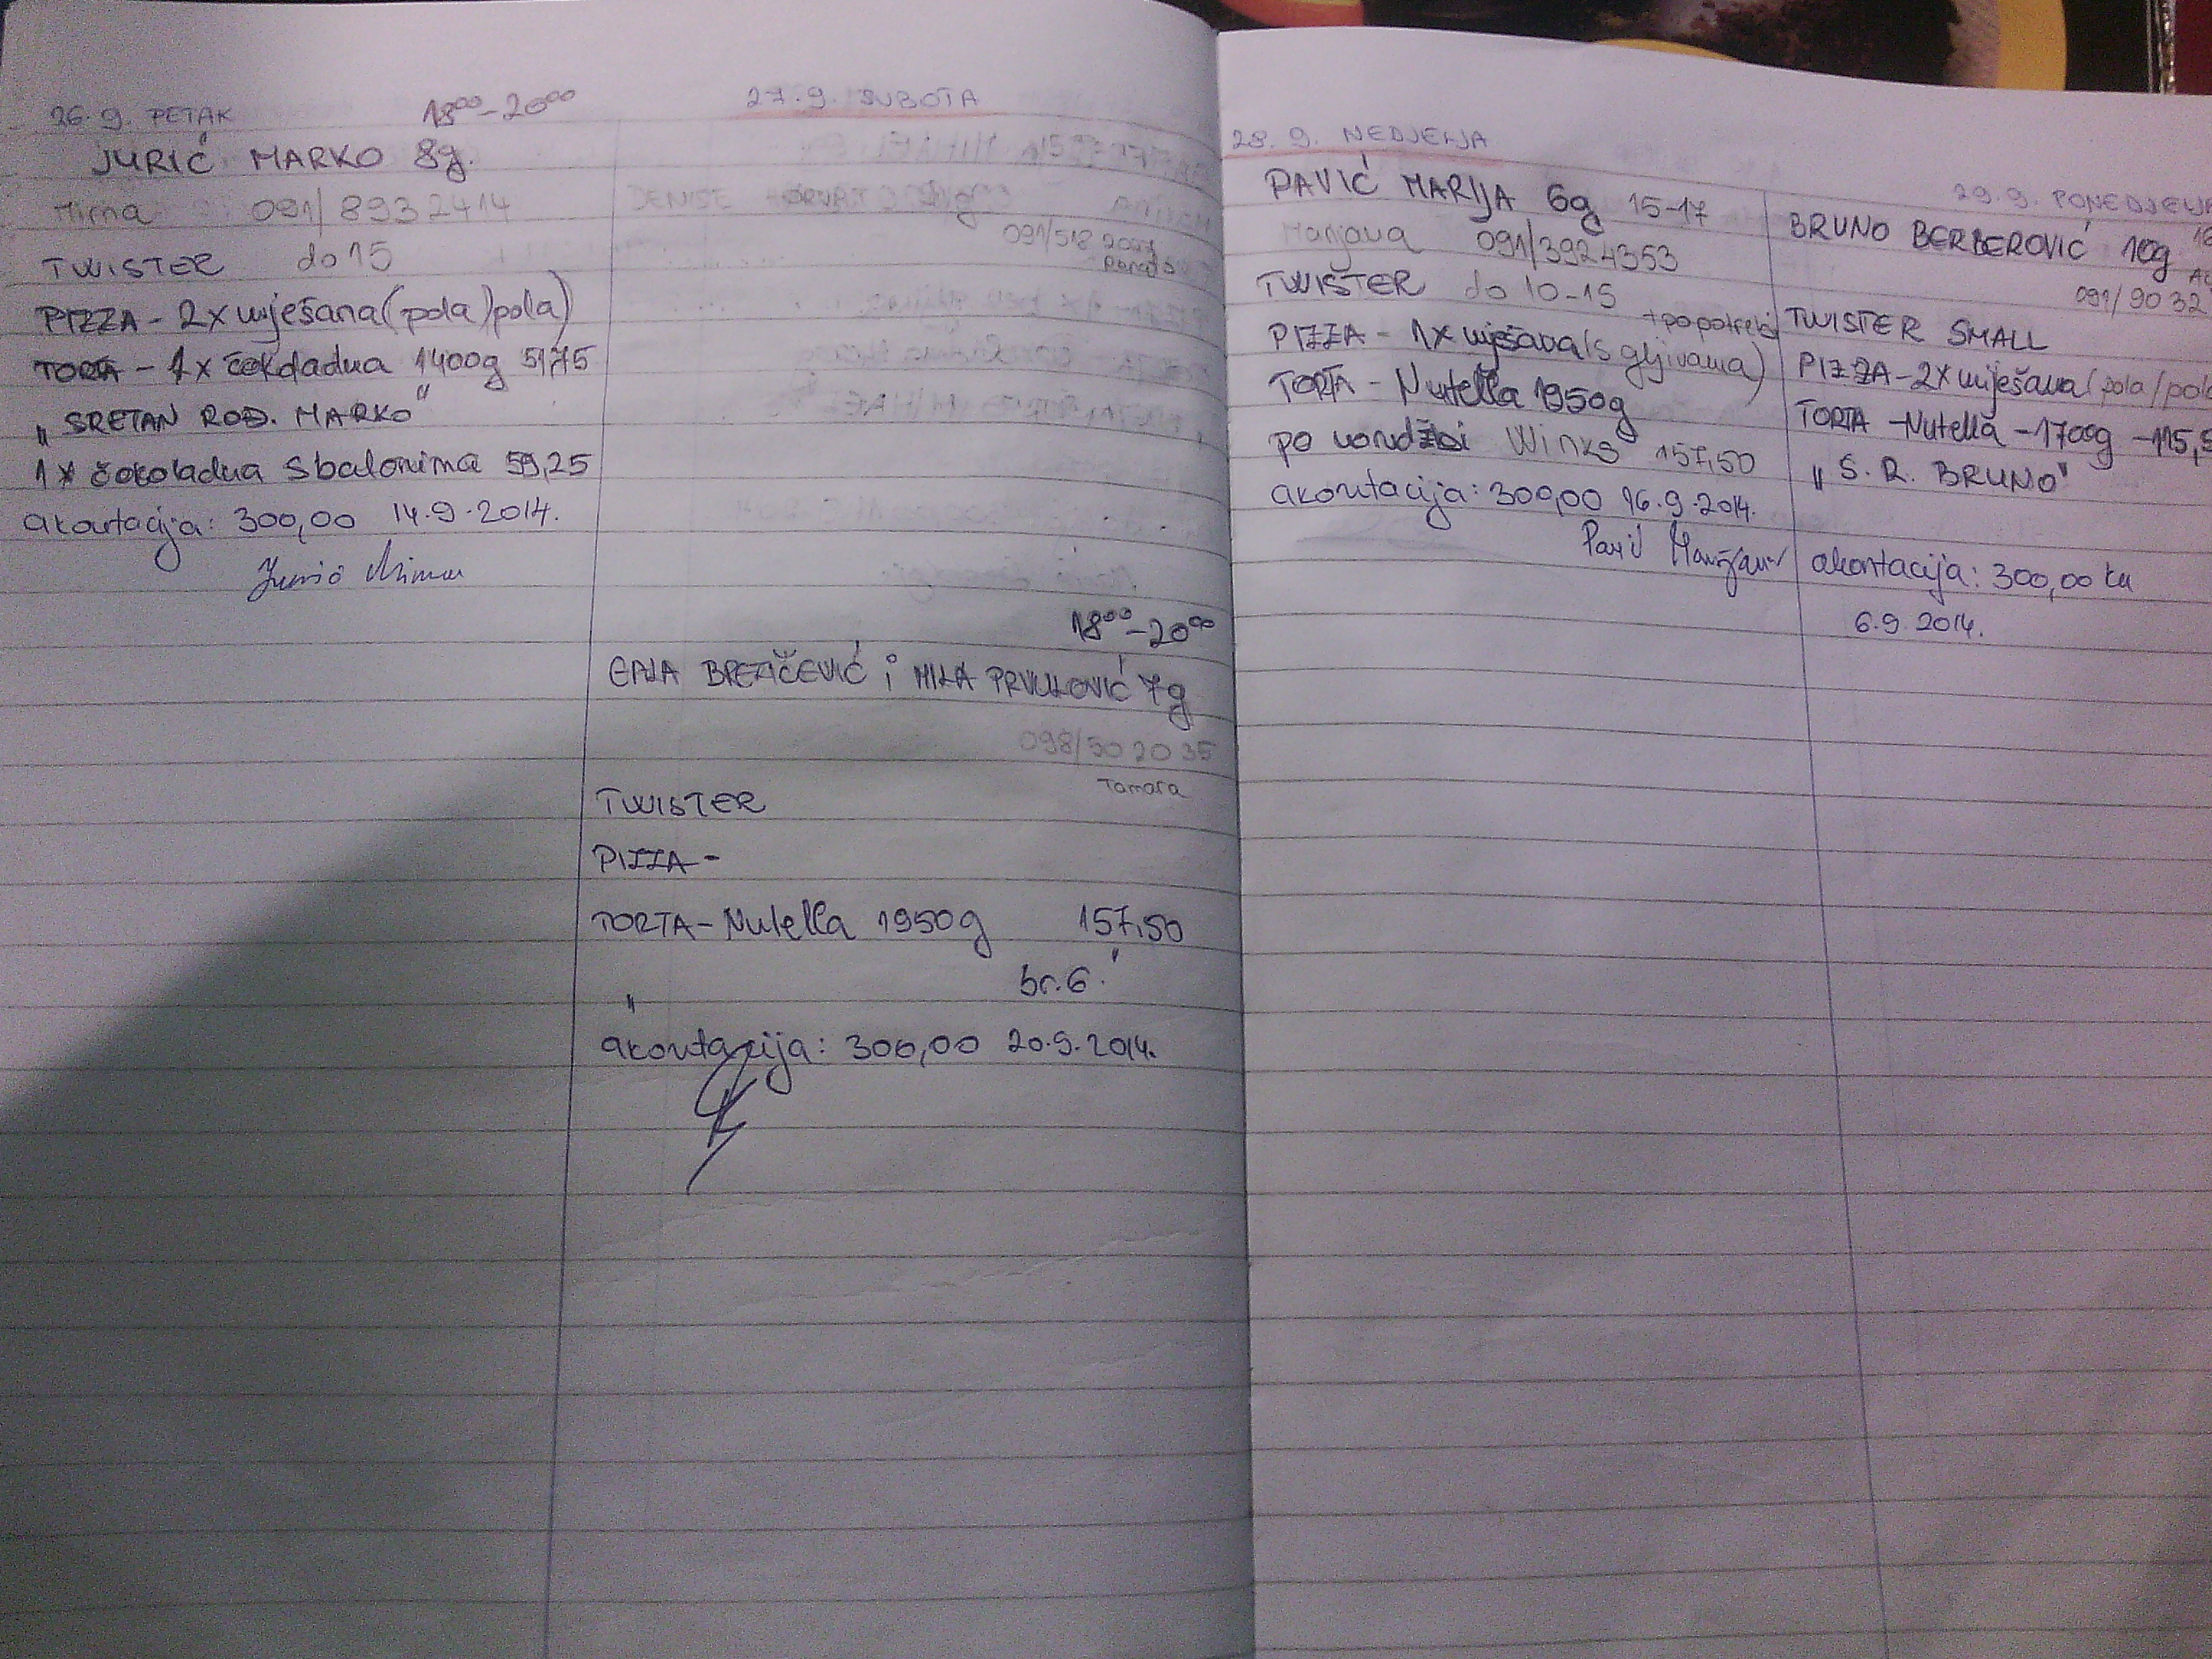 26.9. PETAK 18⁰⁰-20⁰⁰
JURIĆ MARKO 8g.
Mirna 091/8932414
TWISTER do 15
PIZZA - 2x miješana (pola/pola)
TORTA - 1x čokoladna 1400g 51,75
„SRETAN ROĐ. MARKO"
1x čokoladna s balonima 59,25
akontacija: 300,00 14.9.2014.
27.9. SUBOTA
DENISE
091/518
18⁰⁰-20⁰⁰
BREZIČEVIĆ i MILA PRVULOVIĆ 7g
098/50 20 35
Tamara
TWISTER
PIZZA -
TORTA - Nutella 1950g 157,50
„ br.6."
akontacija: 300,00 20.9.2014.
28.9. NEDJELJA
PAVIĆ MARIJA 6g 15-17
Marijana 091/3924353
TWISTER do 10-15
+po potrebi
PIZZA - 1x miješana (s gljivama)
TORTA - Nutella 1950g
po narudžbi Winks 157,50
akontacija: 300,00 16.9.2014.
29.9. PONEDJELJ
BRUNO BERBEROVIĆ 10g
091/90 32
TWISTER SMALL
PIZZA - 2x miješana (pola/pola
TORTA - Nutella - 1700g - 115,5
„S. R. BRUNO"
akontacija: 300,00 kn
6.9.2014.